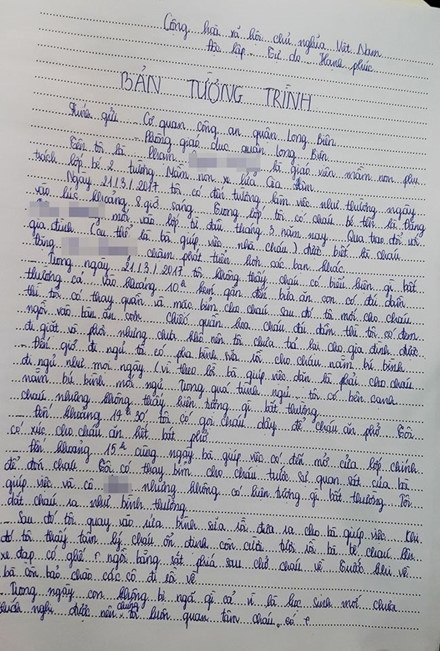 Cộng hòa xã hội chủ nghĩa Việt Nam
Độc lập - Tự do - Hạnh phúc
BẢN TƯỜNG TRÌNH
Kính gửi - Cơ quan công an quận Long Biên
- Phòng giáo dục quận Long Biên
Tên tôi là Phạm là giáo viên mầm non phụ
trách lớp bé 2 trường Mầm non xe lửa Gia Lâm
Ngày 21.3.2017 tôi có đến trường làm việc như thường ngày
vào lúc khoảng 8 giờ sáng. Trong lớp tôi có cháu bé tên là Đặng
mới vào lớp từ đầu tháng 3 năm nay. Qua trao đổi với
gia đình (cụ thể là bà giúp việc nhà cháu) được biết là cháu
Đặng chậm phát triển hơn các bạn khác.
- Trong ngày 21.3.2017 tôi không thấy cháu có biểu hiện gì bất
thường cả vào khoảng 10h kém gần đến bữa ăn con có đái dầm
thì tôi có thay quần và mặc bỉm cho cháu sau đó tôi mới cho cháu
ngồi vào bàn ăn cơm. Chiếc quần của cháu đái dầm thì tôi có đem
đi giặt và phơi nhưng chưa khô nên tôi chưa trả lại cho gia đình được
- Đến giờ đi ngủ tôi có pha bình sữa rồi cho cháu nằm bú bình
đi ngủ như mọi ngày (vì theo lời bà giúp việc dặn là phải cho cháu
nằm bú bình mới ngủ. Trong quá trình ngủ tôi có bên cạnh
cháu nhưng không thấy hiện tượng gì bất thường.
- Đến khoảng 14h30' tôi có gọi cháu dậy để cháu ăn phở. Cô
có xúc cho cháu ăn hết bát phở
- Đến khoảng 15h cùng ngày bà giúp việc có đến mở cửa lớp chính
để đón cháu. Cô có thay bỉm cho cháu trước sự quan sát của bà
giúp việc và cô nhưng không có hiện tượng gì bất thường. Tôi
dắt cháu ra như bình thường.
- Sau đó tôi quay vào rửa bình sữa rồi đưa ra cho bà giúp việc. Khi
đó tôi thấy tâm lý cháu ổn định còn cười với tôi và bà bế cháu lên
xe đạp có ghế ngồi bằng sắt phía sau chở cháu về. Trước khi về
bà còn bảo chào các cô đi rồi về
- Trong ngày con không bị ngã gì cả vì là học sinh mới chưa
được nên tôi luôn quan tâm cháu có